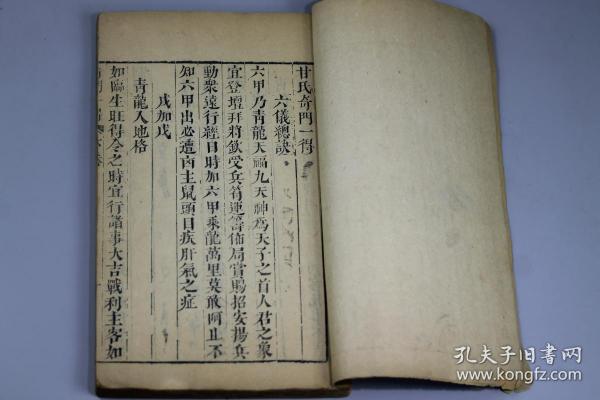 甘氏奇門一得
六儀總訣
六甲乃青龍天福九天神爲天子之首人君之象
宜登壇拜將欽受兵符運籌佈局賞賜招安揚兵
動衆遠行經日時加六甲乘龍萬里莫敢呵止不
知六甲出必遭凶主鼠頭目疾肝氣之症
戊加戊
青龍入地格
如臨生旺得令之時宜行諸事大吉戰利主客如
孔夫子旧書网
www.kongfz.com